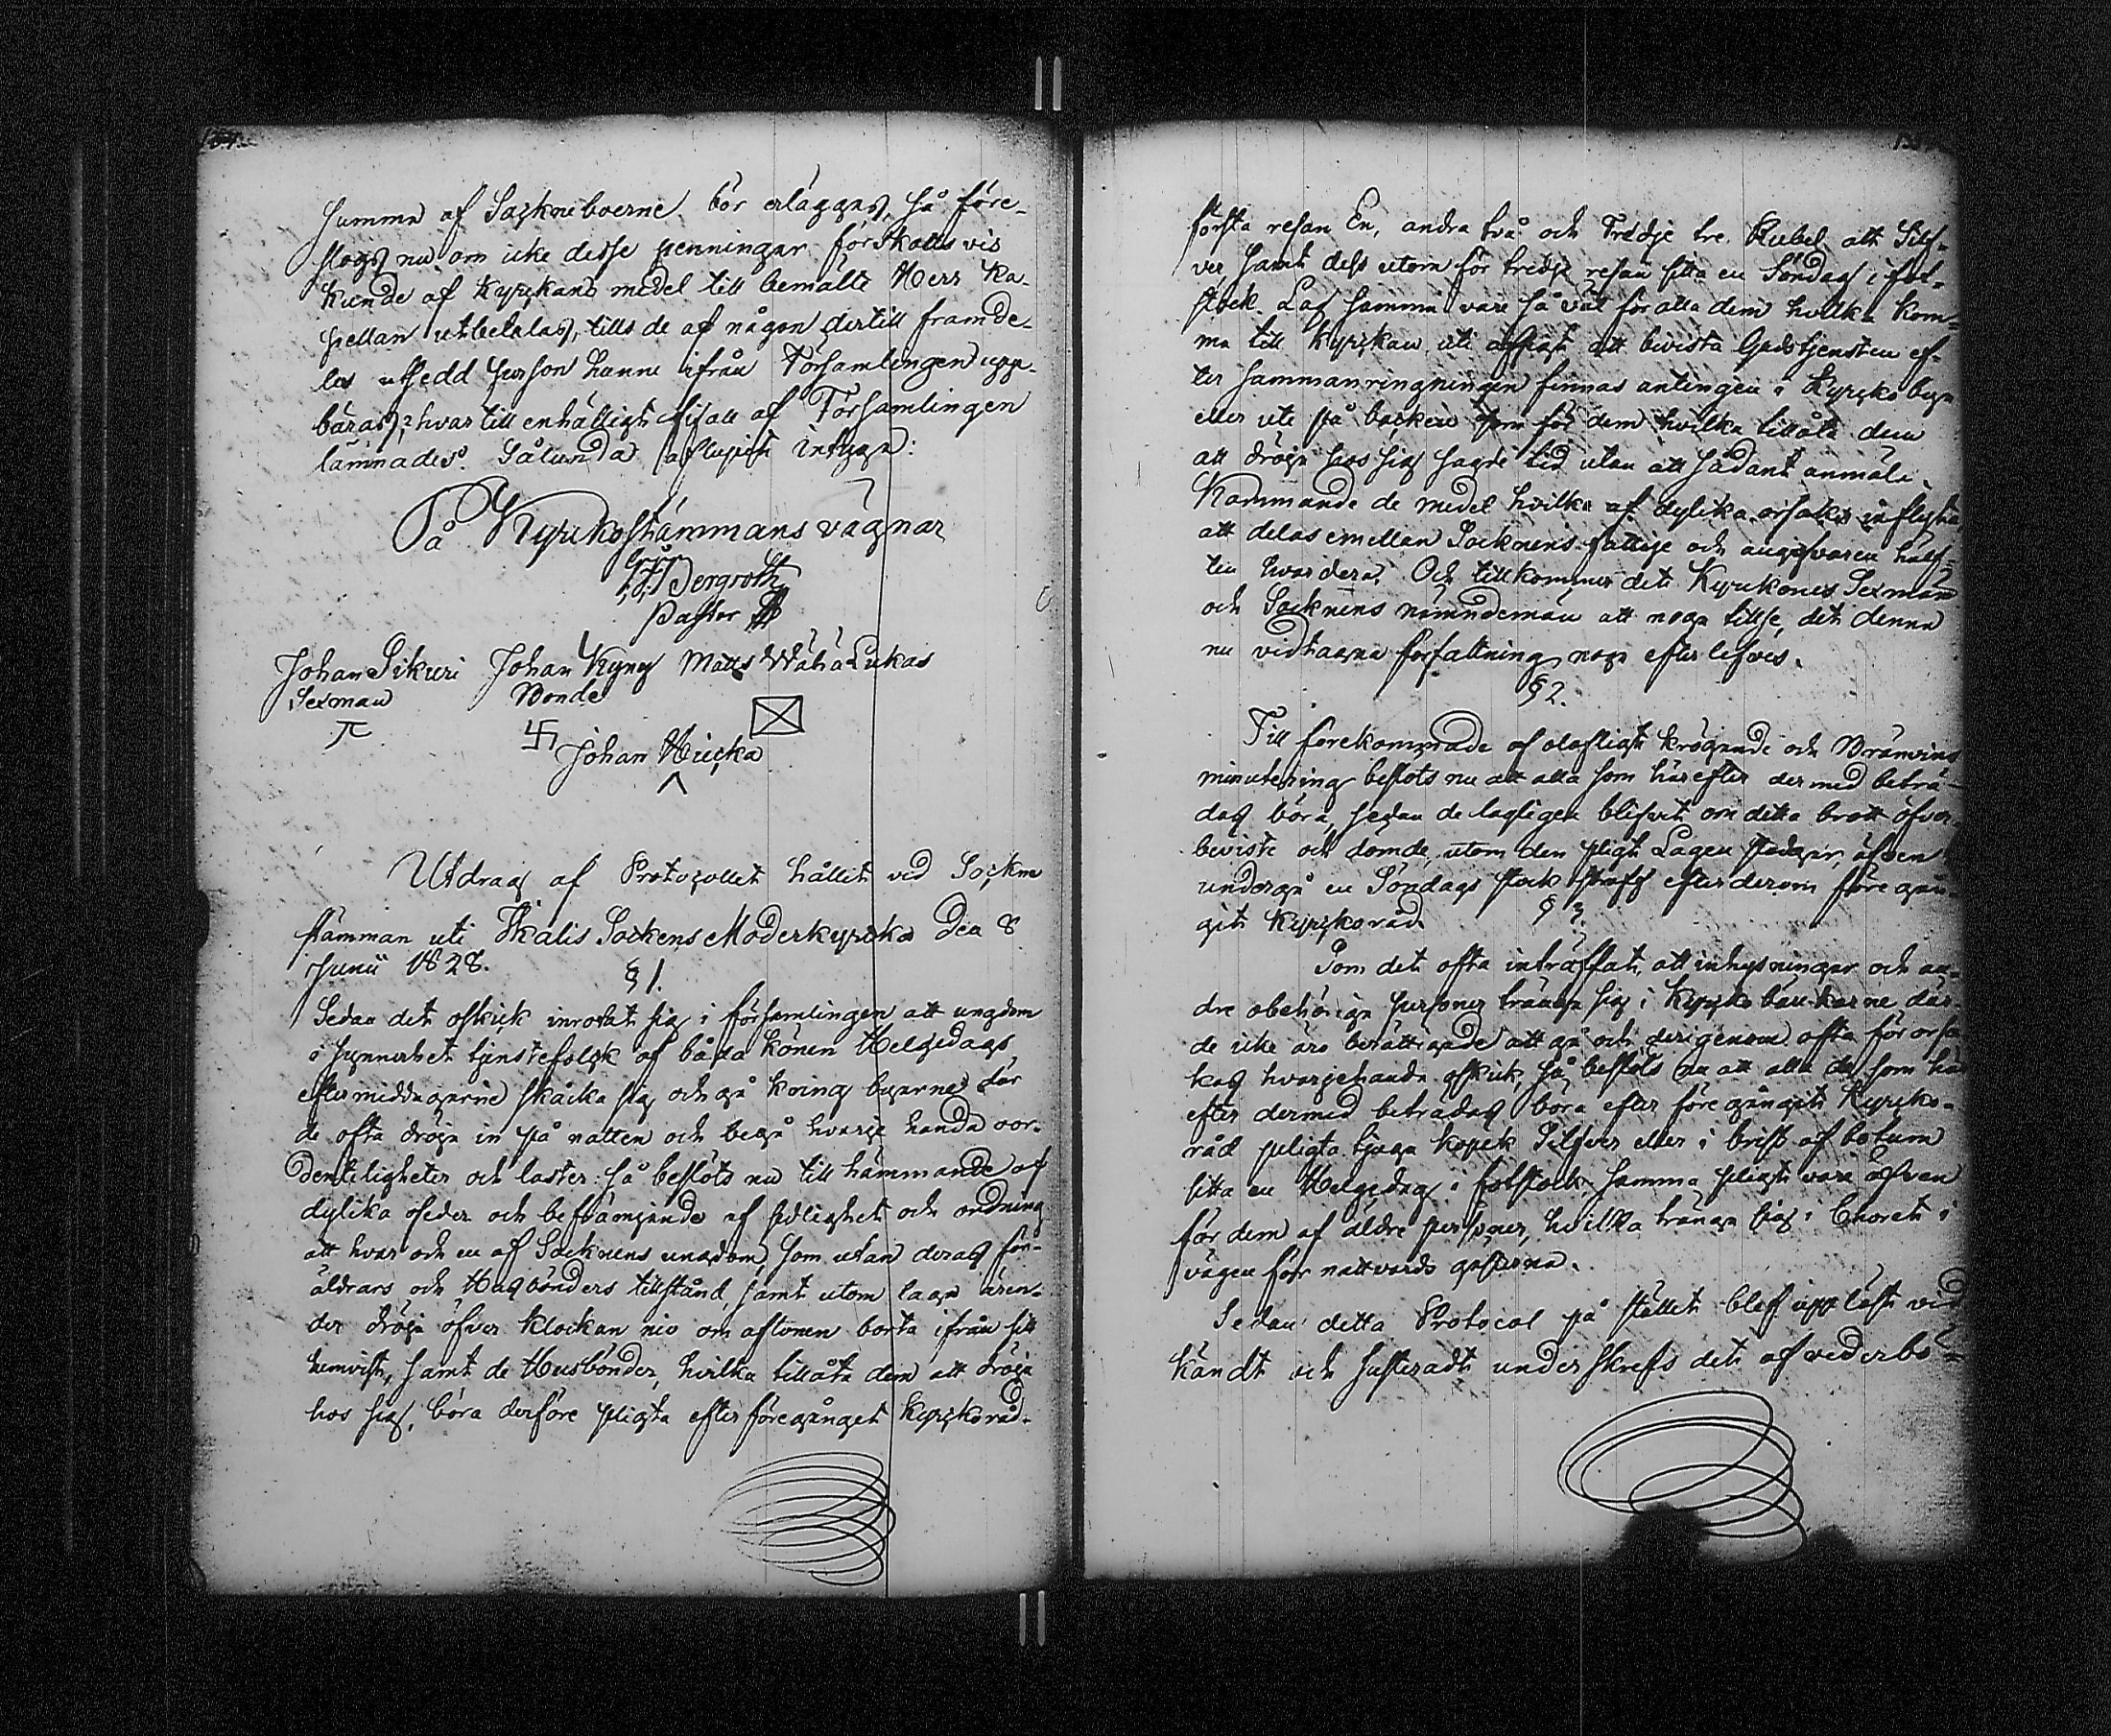 summa af Sockneboerne bör erläggas, så före-
slogs nu om icke desse penningar förskotts vis
kunde af Kyrckans medel till bemälte Herr Ka-
pellan utbetalas, tills de af någon dertill framde-
les utsedd person hunne ifrån Församlingen upp-
bäras; hvartill enhälligt bifall af Församlingen
lämnades. Sålunda aflupit intyga:
På Kyrkostämmans vägnar
Bergroth
Pastor
Johan Sikuri Johan Kyny Matts Wähä Lukas
Sexman Bonde
Johan Hiucka
Utdrag af Protocollet hållit vid Sockne
stämman uti Ikalis Sockens Moderkyrcka Den 8
Junii 1828.
§ 1.
Sedan det oskick inrotat sig i församlingen att ungdom
i synnerhet tjenstefolck af båda könen Helgedags
eftermiddagarne skocka sig och gå kring byarne där
de ofta dröja in på natten och begå hvarje handa oor-
denteligheter och laster: så beslöts nu till hämmande af
dylika oseder och befrämjande af sedlighet och ordning
att hvar och en af Socknens ungdom, som utan deras för-
äldrars och Husbönders tillstånd, samt utom laga ären-
der dröja öfver klockan nio om aftonen borta ifrån sitt
hemvist, samt de Husbönder, hvilka tillåta dem att dröja
hos sig, böra derföre pligta efter föregånget Kyrckoråd.
första resan En, andra två och Tredje tre Rubel att Silf-
ver samt dess utom för tredje resan sitta en Söndag i fot-
stock. Lag samma vare så väl för alla dem hvilka kom-
ma till Kyrckan uti afsigt att bivista Gudstjensten ef-
ter sammanringningen finnas antingen i Kyrcko byn
eller ute på backen som för dem hvilka tillåta dem
att dröja hos sig sagde tid utan att sådant anmäla.
Kommande de medel hvilka af dylika orsaker inflyta
att delas emellan Socknens fattige och angifvaren hälf-
ten hvardera. Och tillkommer det Kyrckones Sexmän
och Socknens nämndemän att noga tillse, det denna
nu vidtagna författning noga efterlefves.
§ 2.
Till förekommade af olofligt krögande och Bränvins
minutering beslöts nu att alla som härefter dermed beträ-
das böra, sedan de lagligen blifvit om detta brott öfver-
beviste och dömde, utom den pligt Lagen stadgar, äfven
undergå en Söndags stock straff efter derom före gån-
git Kyrckoråd.
§ 3.
Som det ofta inträffat, att inhysningar och an-
dre obehöriga personer tränga sig i Kyrcko bänkarne där
de icke äro berättigade att gå och derigenom ofta för orsa
kas hvarjehanda oskick, så beslöts nu att alla de som här
efter dermed beträdas böra efter före gångit Kyrcko-
råd pligta tjugu kopek Silfver eller i brist af botum
sitta en Helgedag i fotstock. Samma pligt vare äfven
för dem af äldre personer, hvilka tränga sig i Choret i
vägen för nattvards gästerna.
Sedan detta Protocol på stället blef uppläst vid
kändt och justeradt underskrefs det af vederbö-